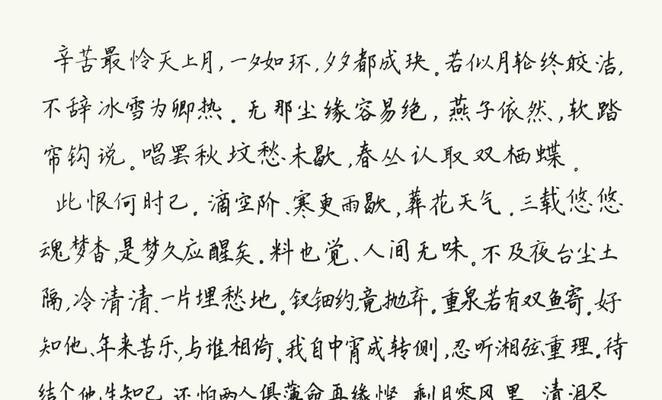 辛苦最怜天上月,一夕如环,夕夕都成玦。若似月轮终皎洁,
不辞冰雪为卿热。无那尘缘容易绝,燕子依然,软踏
帘钩说。唱罢秋坟愁未歇,春丛认取双栖蝶。
此恨何时已。滴空阶、寒更雨歇,葬花天气。三载悠悠
魂梦杳,是梦久应醒矣。料也觉、人间无味。不及夜台尘土
隔,冷清清、一片埋愁地。钗钿约,竟抛弃。重泉若有双鱼寄。好
知他、年来苦乐,与谁相倚。我自中宵成转侧,忍听湘弦重理。待
结个他生知己,还怕两人俱薄命,再缘悭、剩月零风里。清泪尽